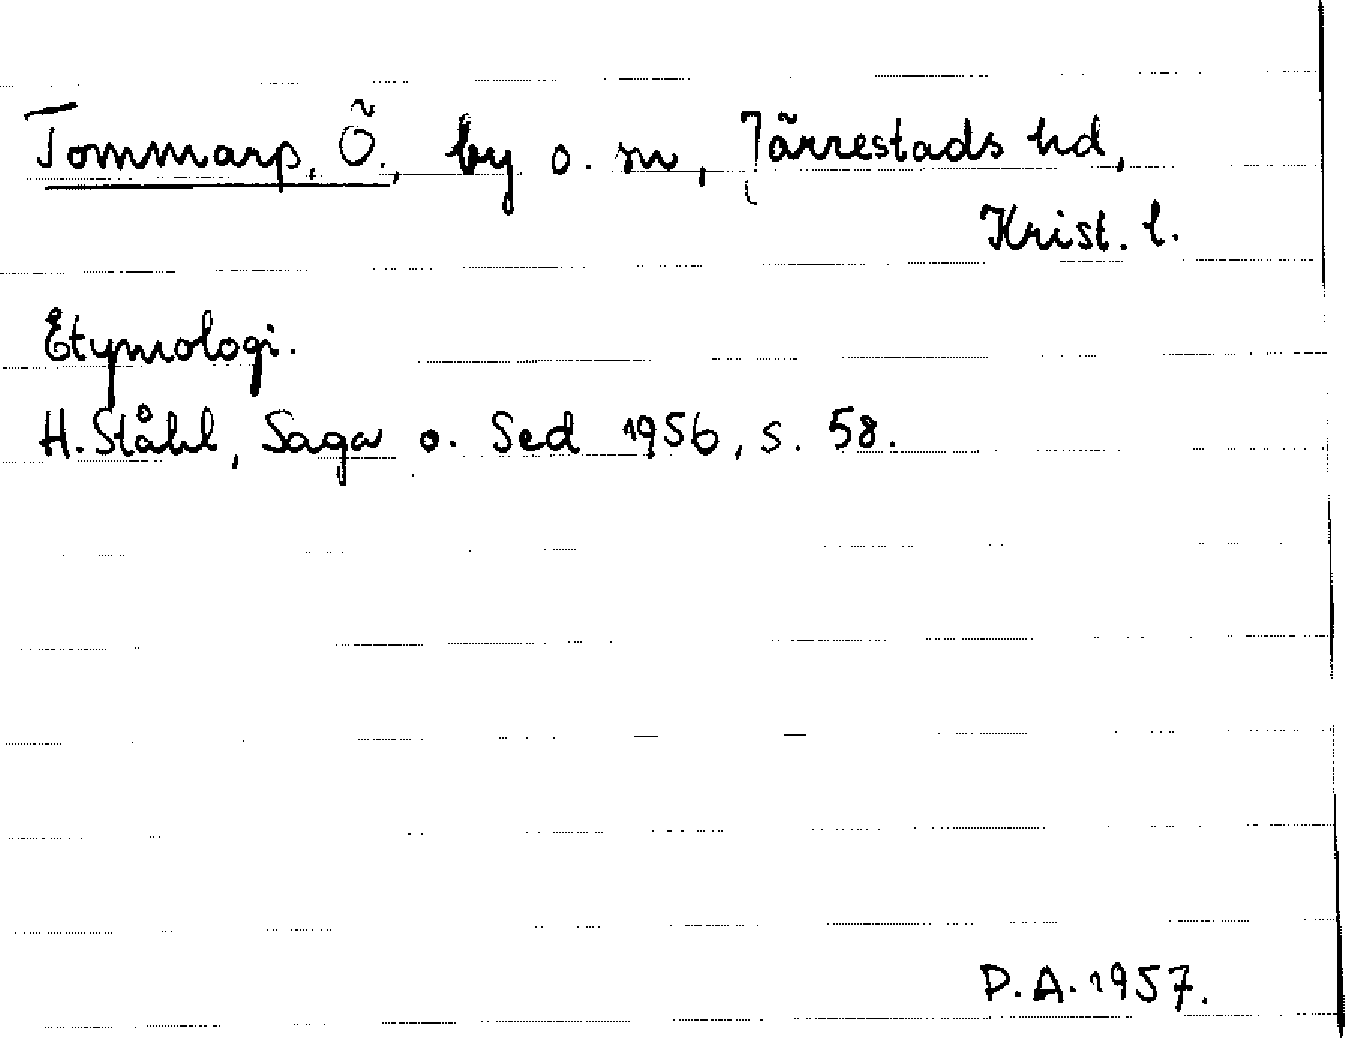 Tommarp, Ö., by o. sn, Järrestads hd,
Krist. l.
Etymologi.
H. Ståhl, Saga o. Sed 1956, s. 58.
P.A. 1957.